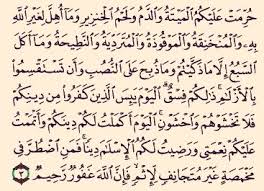 حُرِّمَتْ عَلَيْكُمُ ٱلْمَيْتَةُ وَٱلدَّمُ وَلَحْمُ ٱلْخِنزِيرِ وَمَآ أُهِلَّ لِغَيْرِ ٱللَّهِ
بِهِۦ وَٱلْمُنْخَنِقَةُ وَٱلْمَوْقُوذَةُ وَٱلْمُتَرَدِّيَةُ وَٱلنَّطِيحَةُ وَمَآ أَكَلَ
ٱلسَّبُعُ إِلَّا مَا ذَكَّيْتُمْ وَمَا ذُبِحَ عَلَى ٱلنُّصُبِ وَأَن تَسْتَقْسِمُوا۟
بِٱلْأَزْلَٰمِ ۚ ذَٰلِكُمْ فِسْقٌ ۗ ٱلْيَوْمَ يَئِسَ ٱلَّذِينَ كَفَرُوا۟ مِن دِينِكُمْ
فَلَا تَخْشَوْهُمْ وَٱخْشَوْنِ ۚ ٱلْيَوْمَ أَكْمَلْتُ لَكُمْ دِينَكُمْ وَأَتْمَمْتُ
عَلَيْكُمْ نِعْمَتِى وَرَضِيتُ لَكُمُ ٱلْإِسْلَٰمَ دِينًا ۚ فَمَنِ ٱضْطُرَّ فِى
مَخْمَصَةٍ غَيْرَ مُتَجَانِفٍ لِّإِثْمٍ ۙ فَإِنَّ ٱللَّهَ غَفُورٌ رَّحِيمٌ ٣